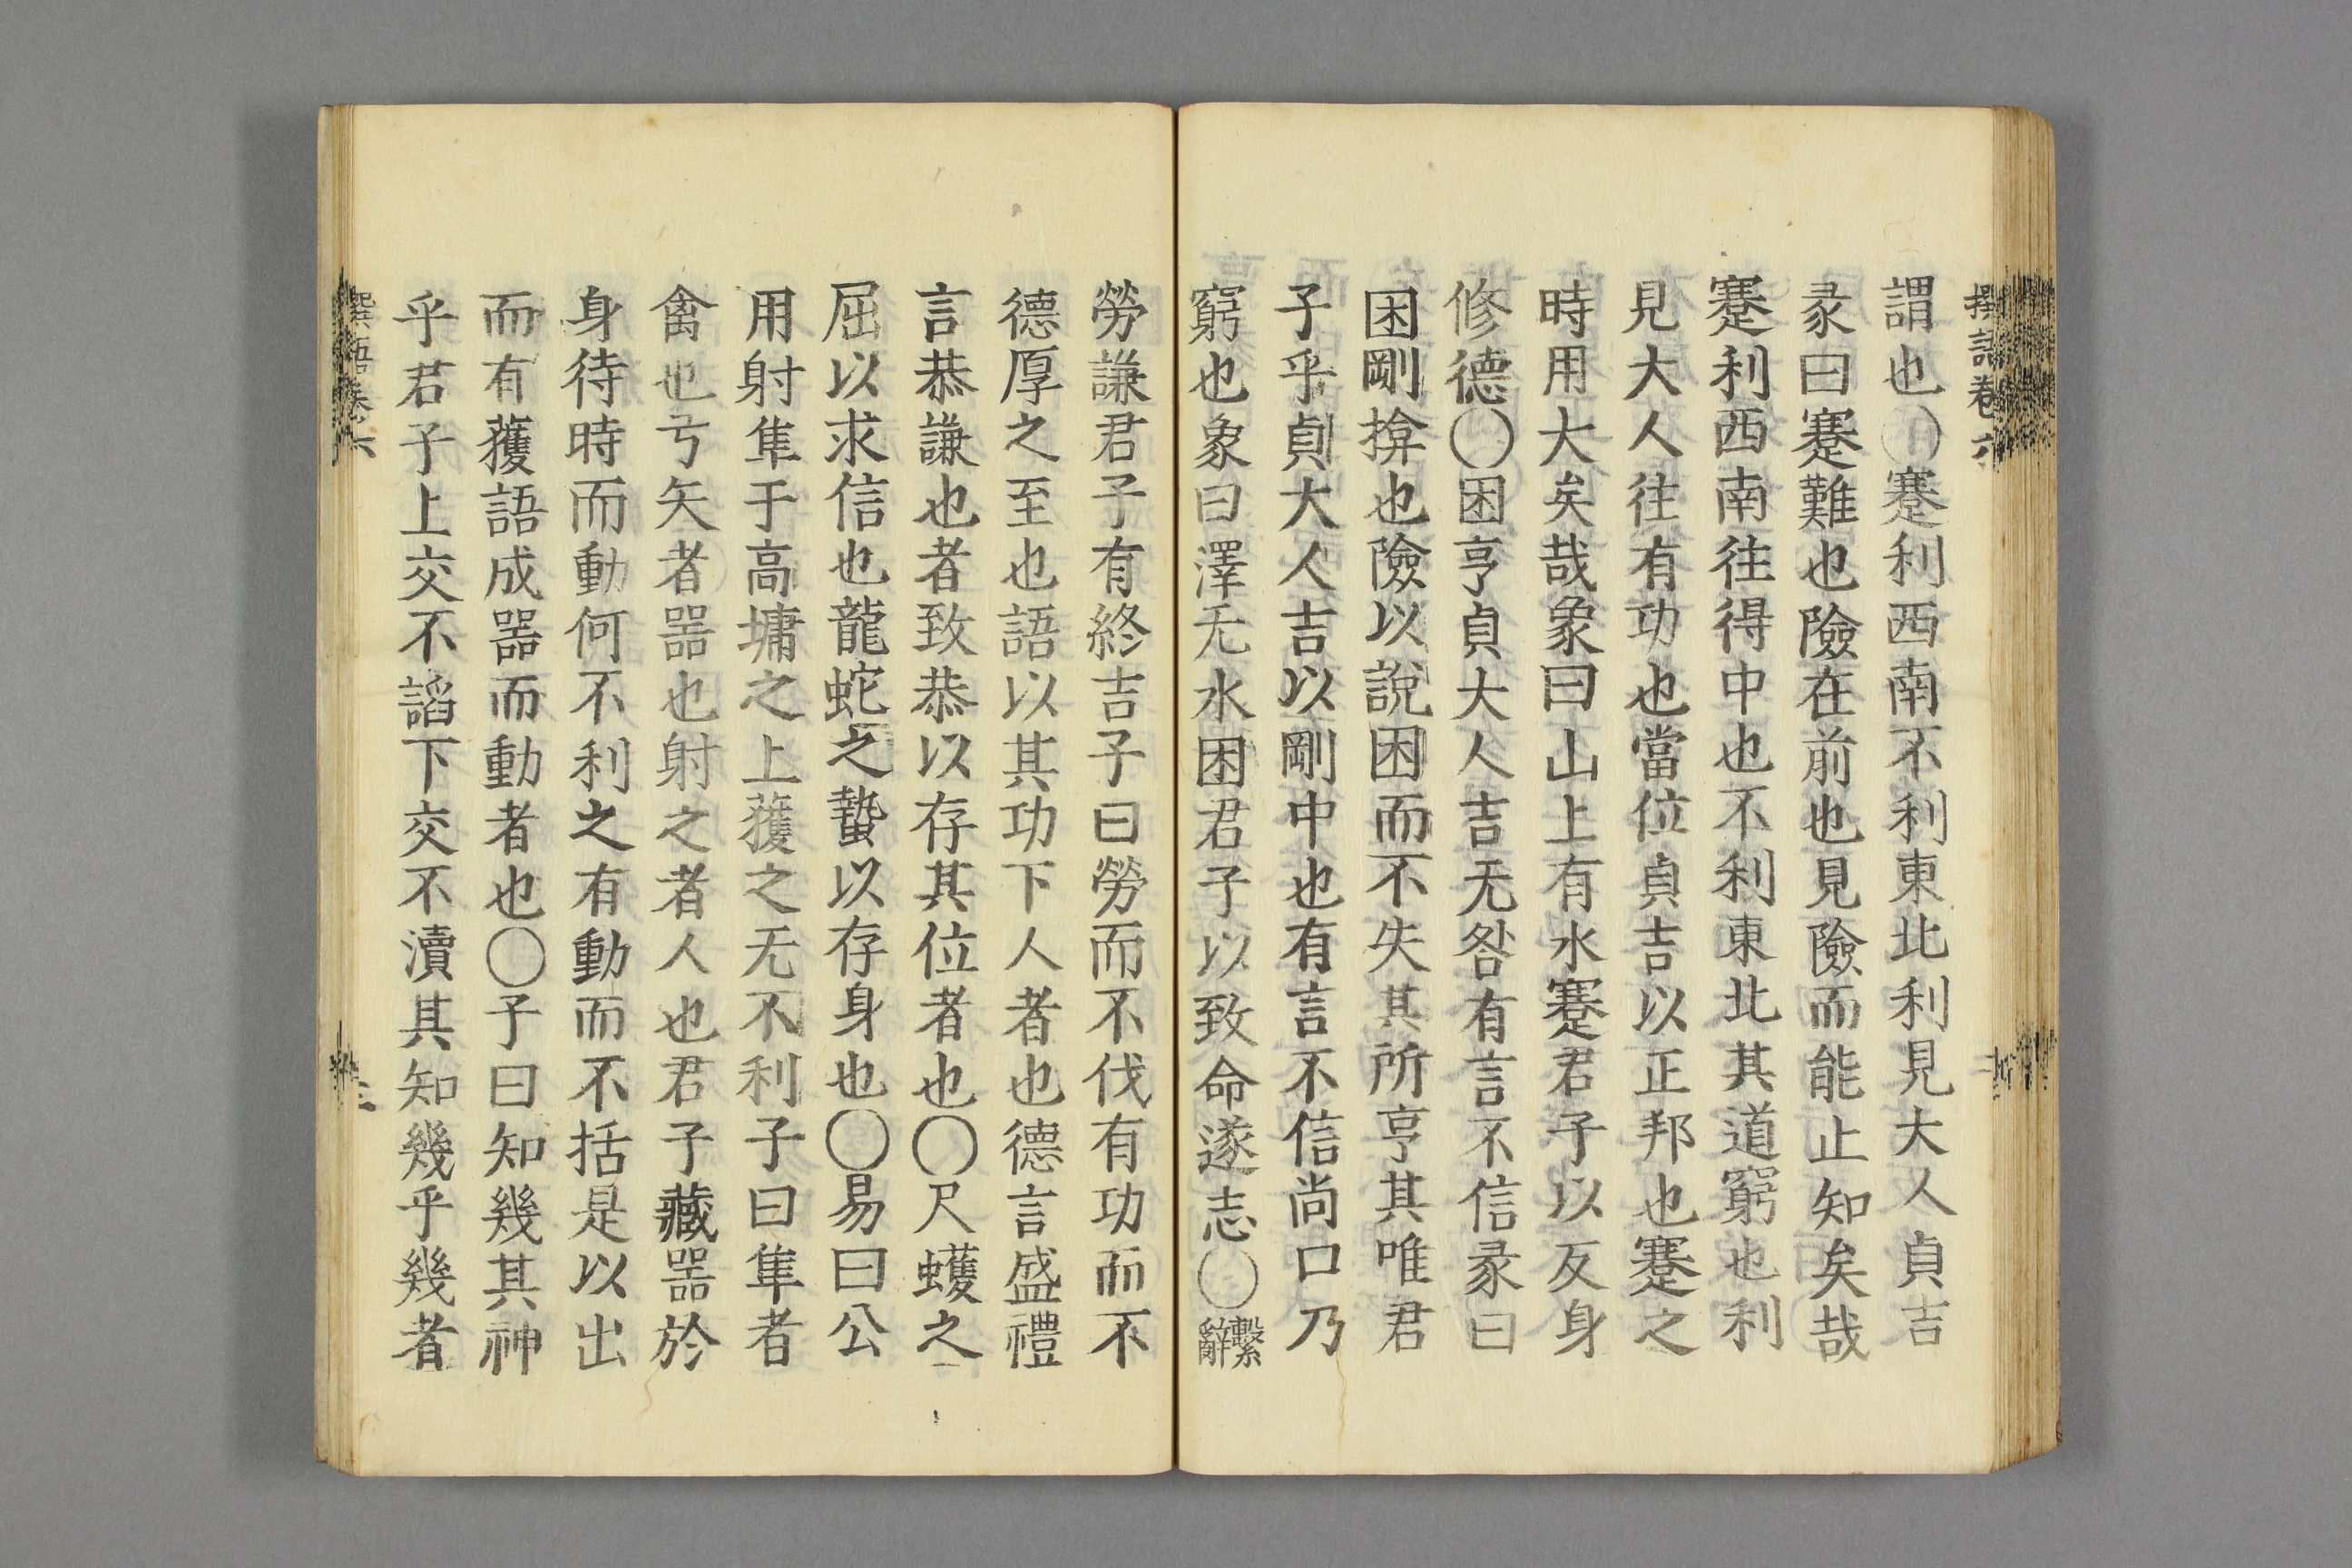 撰語卷六
謂也○蹇利西南不利東北利見大人貞吉
彖曰蹇難也險在前也見險而能止知矣哉
蹇利西南往得中也不利東北其道窮也利
見大人往有功也當位貞吉以正邦也蹇之
時用大矣哉象曰山上有水蹇君子以反身
修德○困亨貞大人吉无咎有言不信彖曰
困剛揜也險以說困而不失其所亨其唯君
子乎貞大人吉以剛中也有言不信尚口乃
窮也象曰澤无水困君子以致命遂志○繫辭
勞謙君子有終吉子曰勞而不伐有功而不
德厚之至也語以其功下人者也德言盛禮
言恭謙也者致恭以存其位者也○尺蠖之
屈以求信也龍蛇之蟄以存身也○易曰公
用射隼于高墉之上獲之无不利子曰隼者
禽也弓矢者器也射之者人也君子藏器於
身待時而動何不利之有動而不括是以出
而有獲語成器而動者也○子曰知幾其神
乎君子上交不諂下交不瀆其知幾乎幾者
撰語卷六